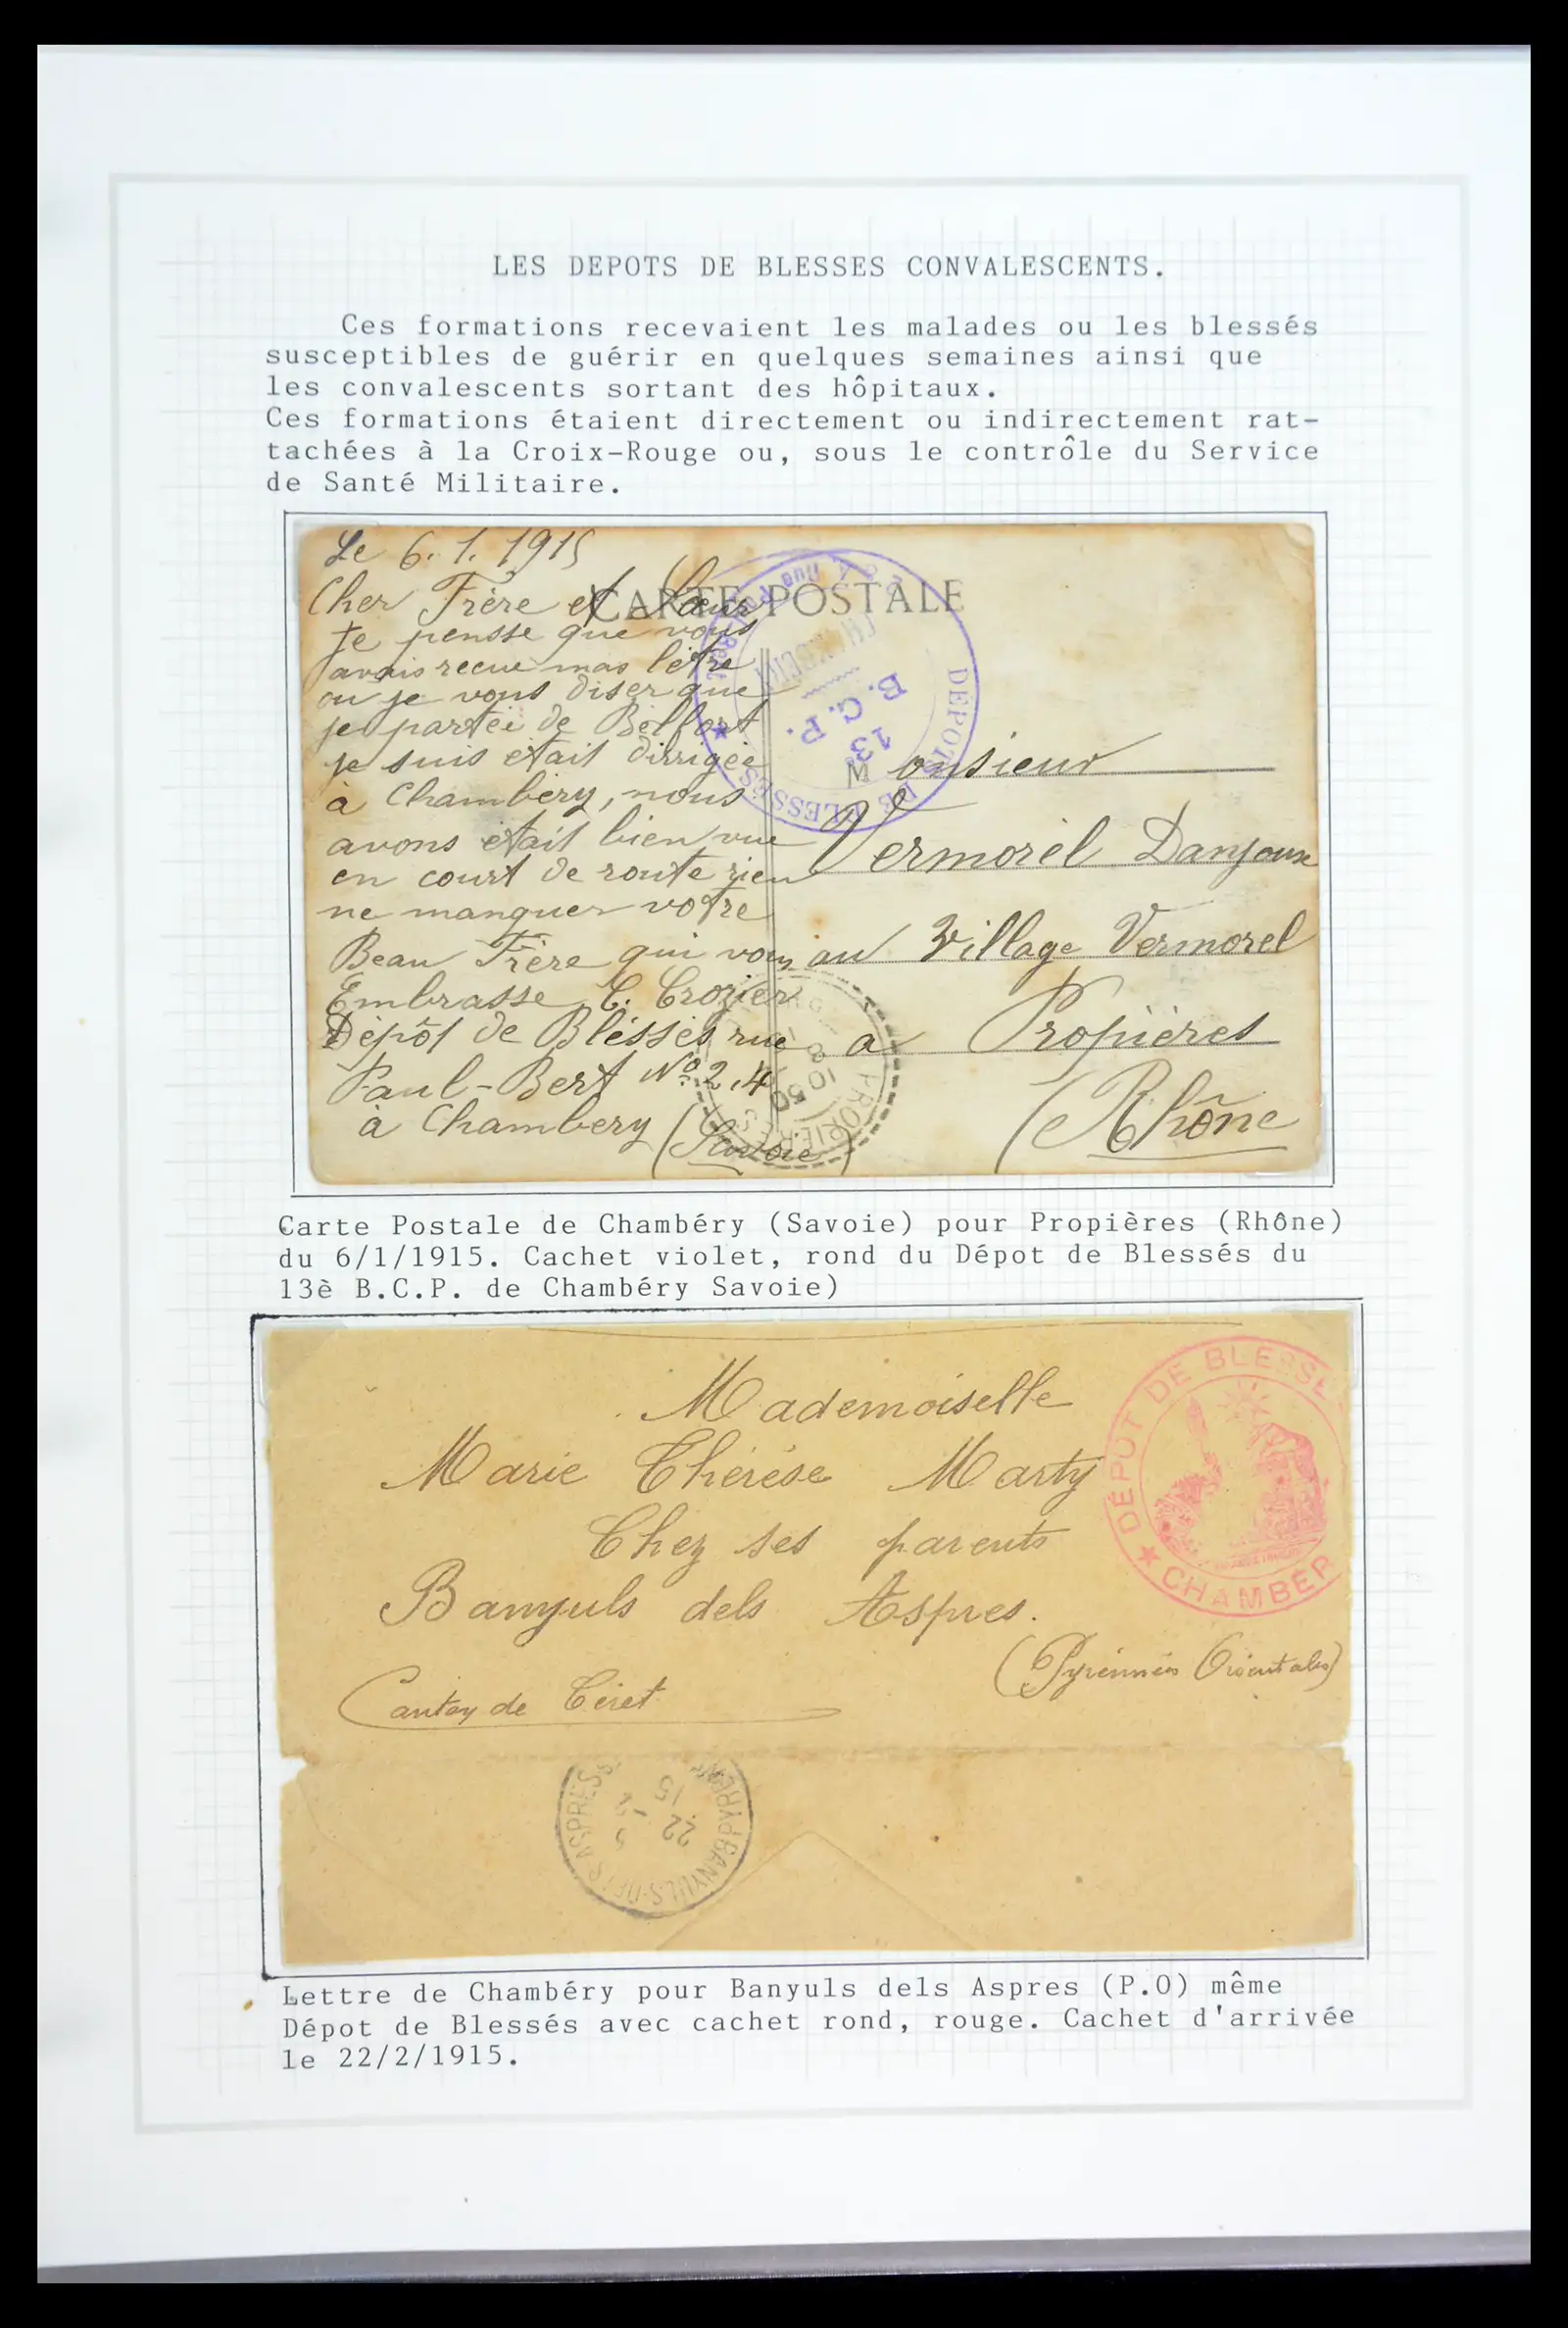 LES DEPOTS DE BLESSES CONVALESCENTS.
Ces formations recevaient les malades ou les blessés
susceptibles de guérir en quelques semaines ainsi que
les convalescents sortant des hôpitaux.
Ces formations étaient directement ou indirectement rat-
tachées à la Croix-Rouge ou, sous le contrôle du Service
de Santé Militaire.
Le 6.1.1915
Cher Frère et Sœur
Je pensse que vous
avais recue mas lètre
ou je vous diser que
je partei de Belfort
je suis était dirrigée
à Chambèry, nous
avons était bien vue
en court de route rien
ne manquer votre
Beau Frère qui vous
Embrasse C. Crozier
Dèpôt de Bléssés rue
Paul-Bert No. 24
à Chambery (Savoie)
CARTE POSTALE
DÉPOTS DE BLESSÉS
13e
B. C. P.
Monsieur
Vermorel Danjoux
au Village Vermorel
a Propières
(Rhône
PROPIERES
Carte Postale de Chambéry (Savoie) pour Propières (Rhône)
du 6/1/1915. Cachet violet, rond du Dépot de Blessés du
13è B.C.P. de Chambéry Savoie)
Mademoiselle
Marie Thérèse Marty
Chez ses parents
Banyuls dels Aspres.
(Pyrénnées Orientales)
Canton de Céret
DÉPOT DE BLESSÉ
★ CHAMBER
BANYULS-DELS-ASPRES
22
15
Lettre de Chambéry pour Banyuls dels Aspres (P.O) même
Dépot de Blessés avec cachet rond, rouge. Cachet d'arrivée
le 22/2/1915.